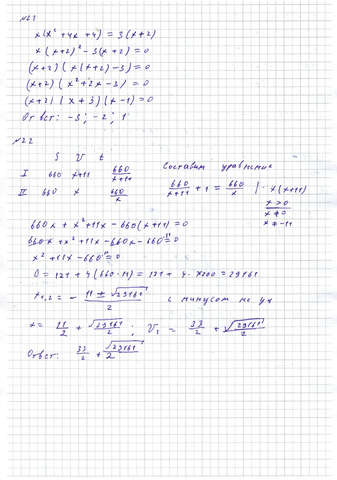 №21
x(x² + 4x + 4) = 3(x+2)
x(x+2)² - 3(x+2) = 0
(x+2)(x(x+2) - 3) = 0
(x+2)(x² + 2x - 3) = 0
(x+2)(x+3)(x-1) = 0
Ответ: -3; -2; 1
№22
S V t
I 660 x+11 660/(x+11) Составим уравнение
II 660 x 660/x 660/(x+11) + 1 = 660/x | · x(x+11)
x>0
x≠0
x≠-11
660x + x² + 11x - 660(x+11) = 0
660x + x² + 11x - 660x - 660·11 = 0
x² + 11x - 660·11 = 0
D = 121 + 4(660·11) = 121 + 4 · 7260 = 29161
x₁,₂ = - (11 ± √29161)/2 с минусом не
x = 11/2 + √29161/2 ; V₁ = 33/2 + √29161/2
Ответ: 33/2 + √29161/2